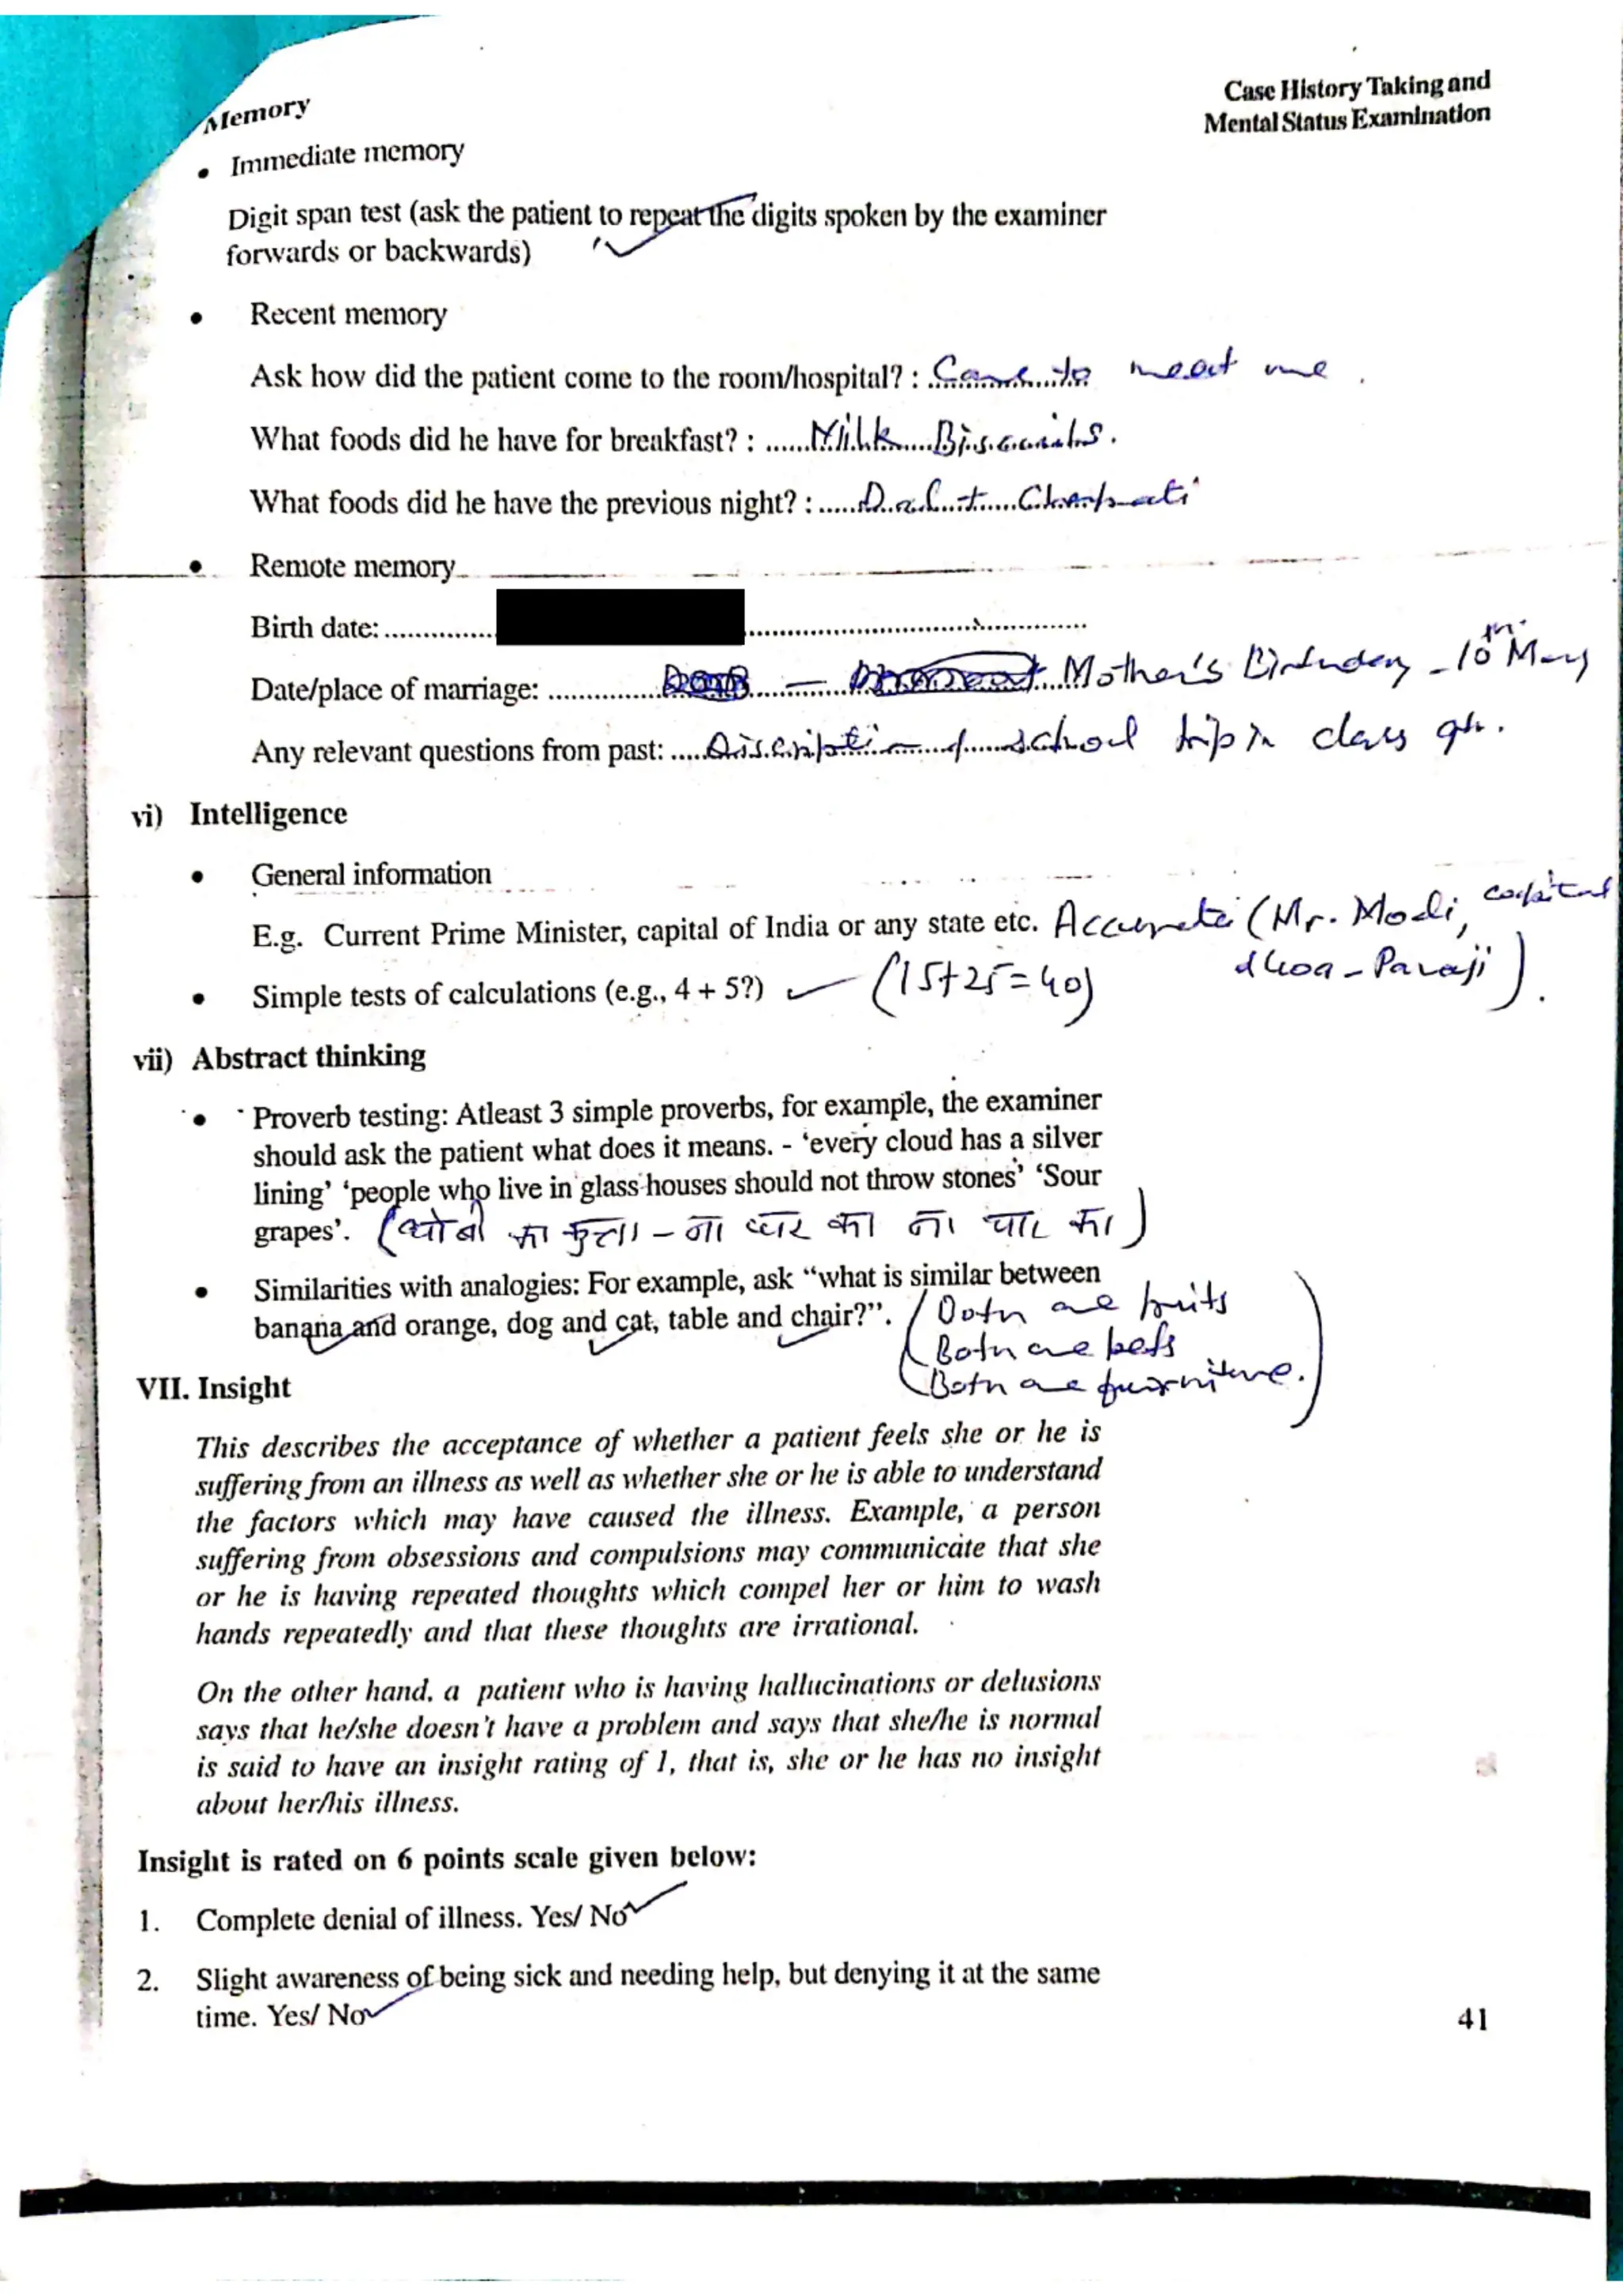 Case History Taking and
Mental Status Examination
Memory
• Immediate memory
Digit span test (ask the patient to repeat the digits spoken by the examiner
forwards or backwards)
• Recent memory
Ask how did the patient come to the room/hospital? : Came to meet me.
What foods did he have for breakfast? : ......Milk Biscuits.
What foods did he have the previous night? : .....Dal + Chapati
• Remote memory
Birth date: ..............
Date/place of marriage: ............... — Mother's Birthday - 10th May
Any relevant questions from past: ..... of school trip in class 9th.
vi) Intelligence
• General information
E.g. Current Prime Minister, capital of India or any state etc. Accurate (Mr. Modi, capital
- Panaji).
• Simple tests of calculations (e.g., 4 + 5?) ✓ (15+25=40)
vii) Abstract thinking
• Proverb testing: Atleast 3 simple proverbs, for example, the examiner
should ask the patient what does it means. - 'every cloud has a silver
lining' 'people who live in glass houses should not throw stones' 'Sour
grapes'. (धोबी का कुत्ता – ना घर का ना घाट का)
• Similarities with analogies: For example, ask "what is similar between
banana and orange, dog and cat, table and chair?". (Both are fruits
Both are pets
Both are furniture.)
VII. Insight
This describes the acceptance of whether a patient feels she or he is
suffering from an illness as well as whether she or he is able to understand
the factors which may have caused the illness. Example, a person
suffering from obsessions and compulsions may communicate that she
or he is having repeated thoughts which compel her or him to wash
hands repeatedly and that these thoughts are irrational.
On the other hand, a patient who is having hallucinations or delusions
says that he/she doesn't have a problem and says that she/he is normal
is said to have an insight rating of 1, that is, she or he has no insight
about her/his illness.
Insight is rated on 6 points scale given below:
1. Complete denial of illness. Yes/ No✓
2. Slight awareness of being sick and needing help, but denying it at the same
time. Yes/ No✓
41